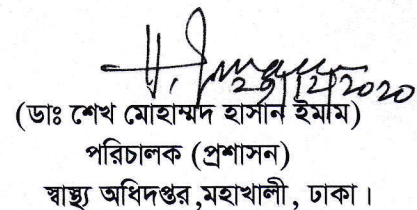 ২৯/১২/২০২০
(ডাঃ শেখ মোহাম্মদ হাসান ইমাম)
পরিচালক (প্রশাসন)
স্বাস্থ্য অধিদপ্তর,মহাখালী, ঢাকা।